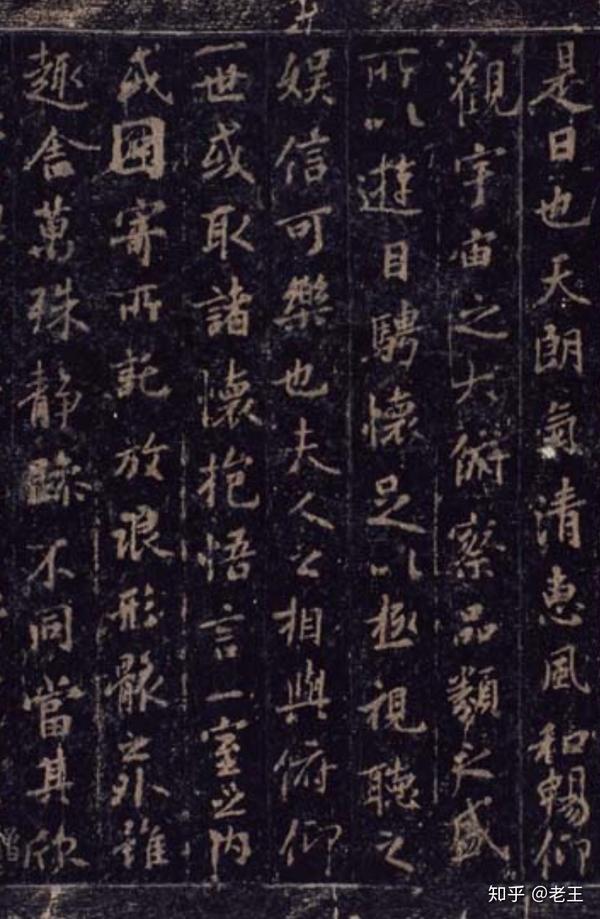 是日也天朗氣清惠風和暢仰
觀宇宙之大俯察品類之盛
所以遊目騁懷足以極視聽之
娛信可樂也夫人之相與俯仰
一世或取諸懷抱悟言一室之内
或因寄所託放浪形骸之外雖
趣舍萬殊静躁不同當其欣
知乎 @老王